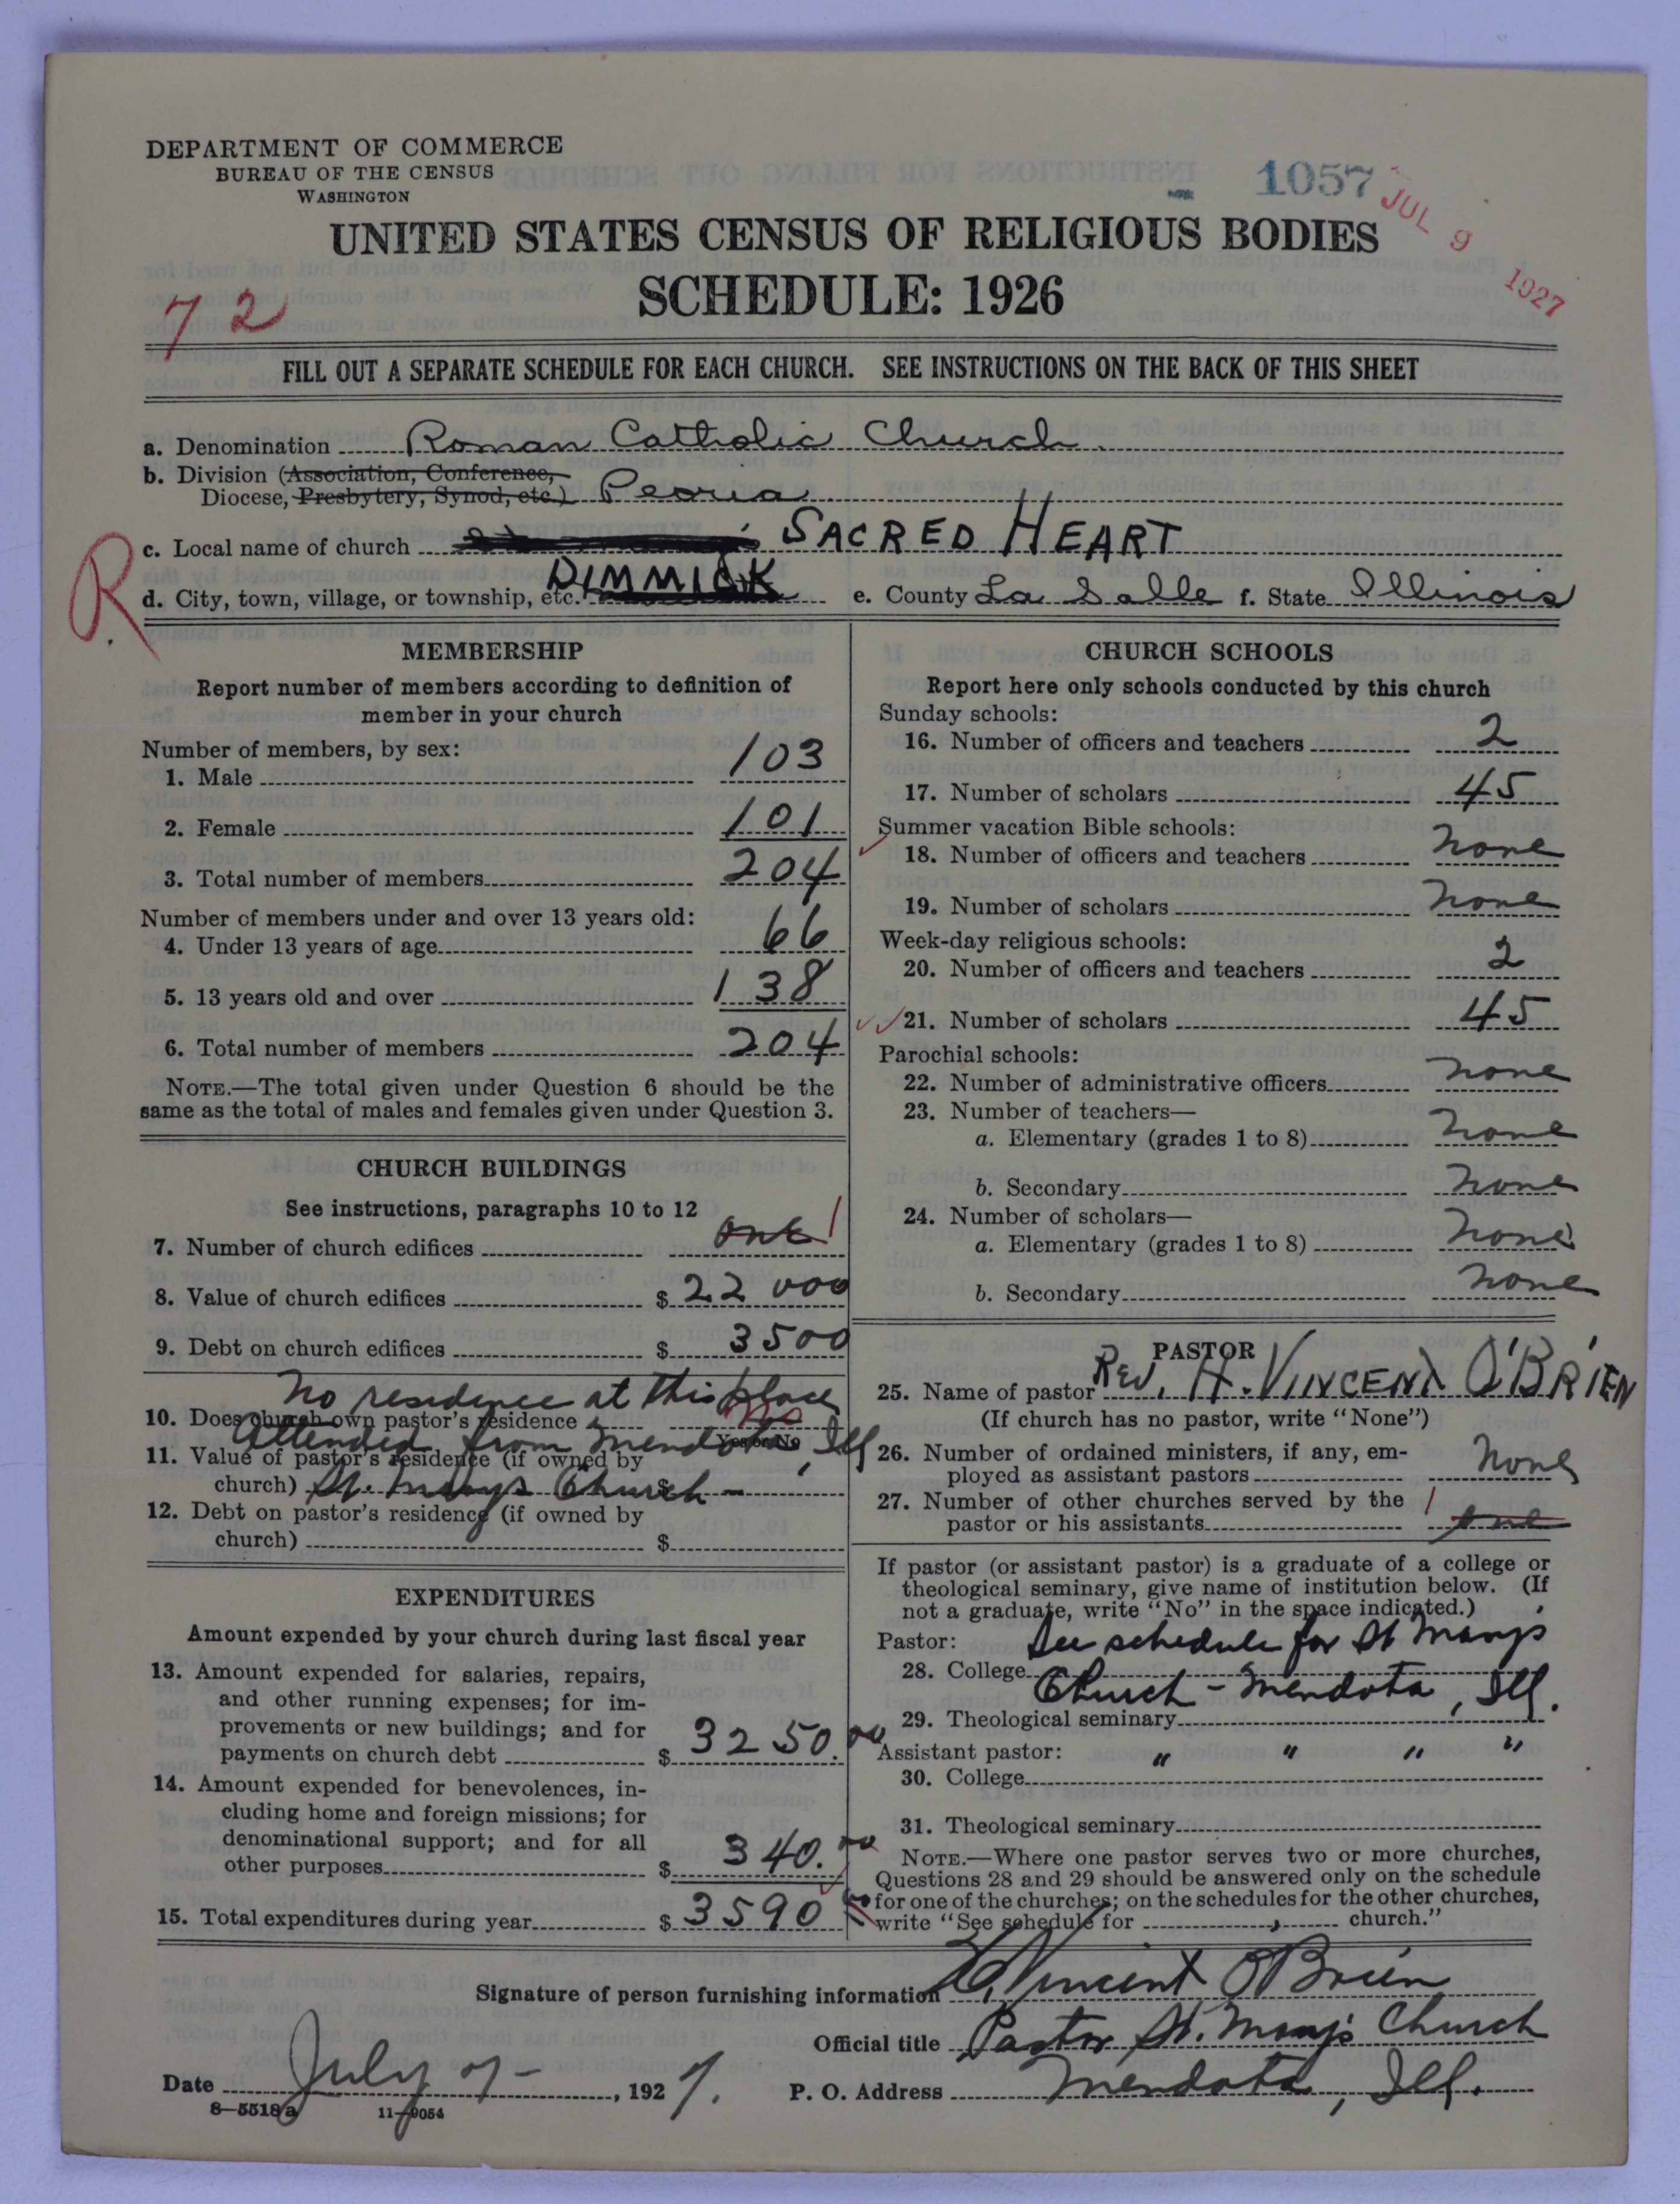 DEPARTMENT OF COMMERCE
BUREAU OF THE CENSUS
WASHINGTON
1057
JUL 9 1927
UNITED STATES CENSUS OF RELIGIOUS BODIES
SCHEDULE: 1926
72
FILL OUT A SEPARATE SCHEDULE FOR EACH CHURCH. SEE INSTRUCTIONS ON THE BACK OF THIS SHEET
a. Denomination Roman Catholic Church
b. Division (Association, Conference,
Diocese, Presbytery, Synod, etc.) Peoria
R
c. Local name of church SACRED HEART
d. City, town, village, or township, etc. DIMMICK e. County La Salle f. State Illinois
MEMBERSHIP
Report number of members according to definition of
member in your church
Number of members, by sex:
1. Male 103
2. Female 101
3. Total number of members 204
Number of members under and over 13 years old:
4. Under 13 years of age 66
5. 13 years old and over 138
6. Total number of members 204
NOTE.—The total given under Question 6 should be the
same as the total of males and females given under Question 3.
CHURCH BUILDINGS
See instructions, paragraphs 10 to 12
7. Number of church edifices one 1
8. Value of church edifices $ 22 000
9. Debt on church edifices $ 3500
No residence at this place
10. Does church own pastor's residence No
Yes or No
Attended from Mendota, Ill
11. Value of pastor's residence (if owned by
church) St. Marys Church – $
12. Debt on pastor's residence (if owned by
church) $
EXPENDITURES
Amount expended by your church during last fiscal year
13. Amount expended for salaries, repairs,
and other running expenses; for im-
provements or new buildings; and for
payments on church debt $ 3250.00
14. Amount expended for benevolences, in-
cluding home and foreign missions; for
denominational support; and for all
other purposes $ 340.00
15. Total expenditures during year $ 3590
CHURCH SCHOOLS
Report here only schools conducted by this church
Sunday schools:
16. Number of officers and teachers 2
17. Number of scholars 45
Summer vacation Bible schools:
18. Number of officers and teachers None
19. Number of scholars None
Week-day religious schools:
20. Number of officers and teachers 2
21. Number of scholars 45
Parochial schools:
22. Number of administrative officers None
23. Number of teachers—
a. Elementary (grades 1 to 8) None
b. Secondary None
24. Number of scholars—
a. Elementary (grades 1 to 8) None
b. Secondary None
PASTOR
25. Name of pastor REV. H. VINCENT O'BRIEN
(If church has no pastor, write "None")
26. Number of ordained ministers, if any, em-
ployed as assistant pastors None
27. Number of other churches served by the
pastor or his assistants 1 one
If pastor (or assistant pastor) is a graduate of a college or
theological seminary, give name of institution below. (If
not a graduate, write "No" in the space indicated.)
Pastor: See schedule for St Marys
28. College Church – Mendota, Ill.
29. Theological seminary
Assistant pastor: " " " "
30. College
31. Theological seminary
NOTE.—Where one pastor serves two or more churches,
Questions 28 and 29 should be answered only on the schedule
for one of the churches; on the schedules for the other churches,
write "See schedule for , church."
Signature of person furnishing information H. Vincent O'Brien
Official title Pastor St. Mary's Church
Date July 7 –, 1927. P. O. Address Mendota, Ill.
8—5518a 11—9054